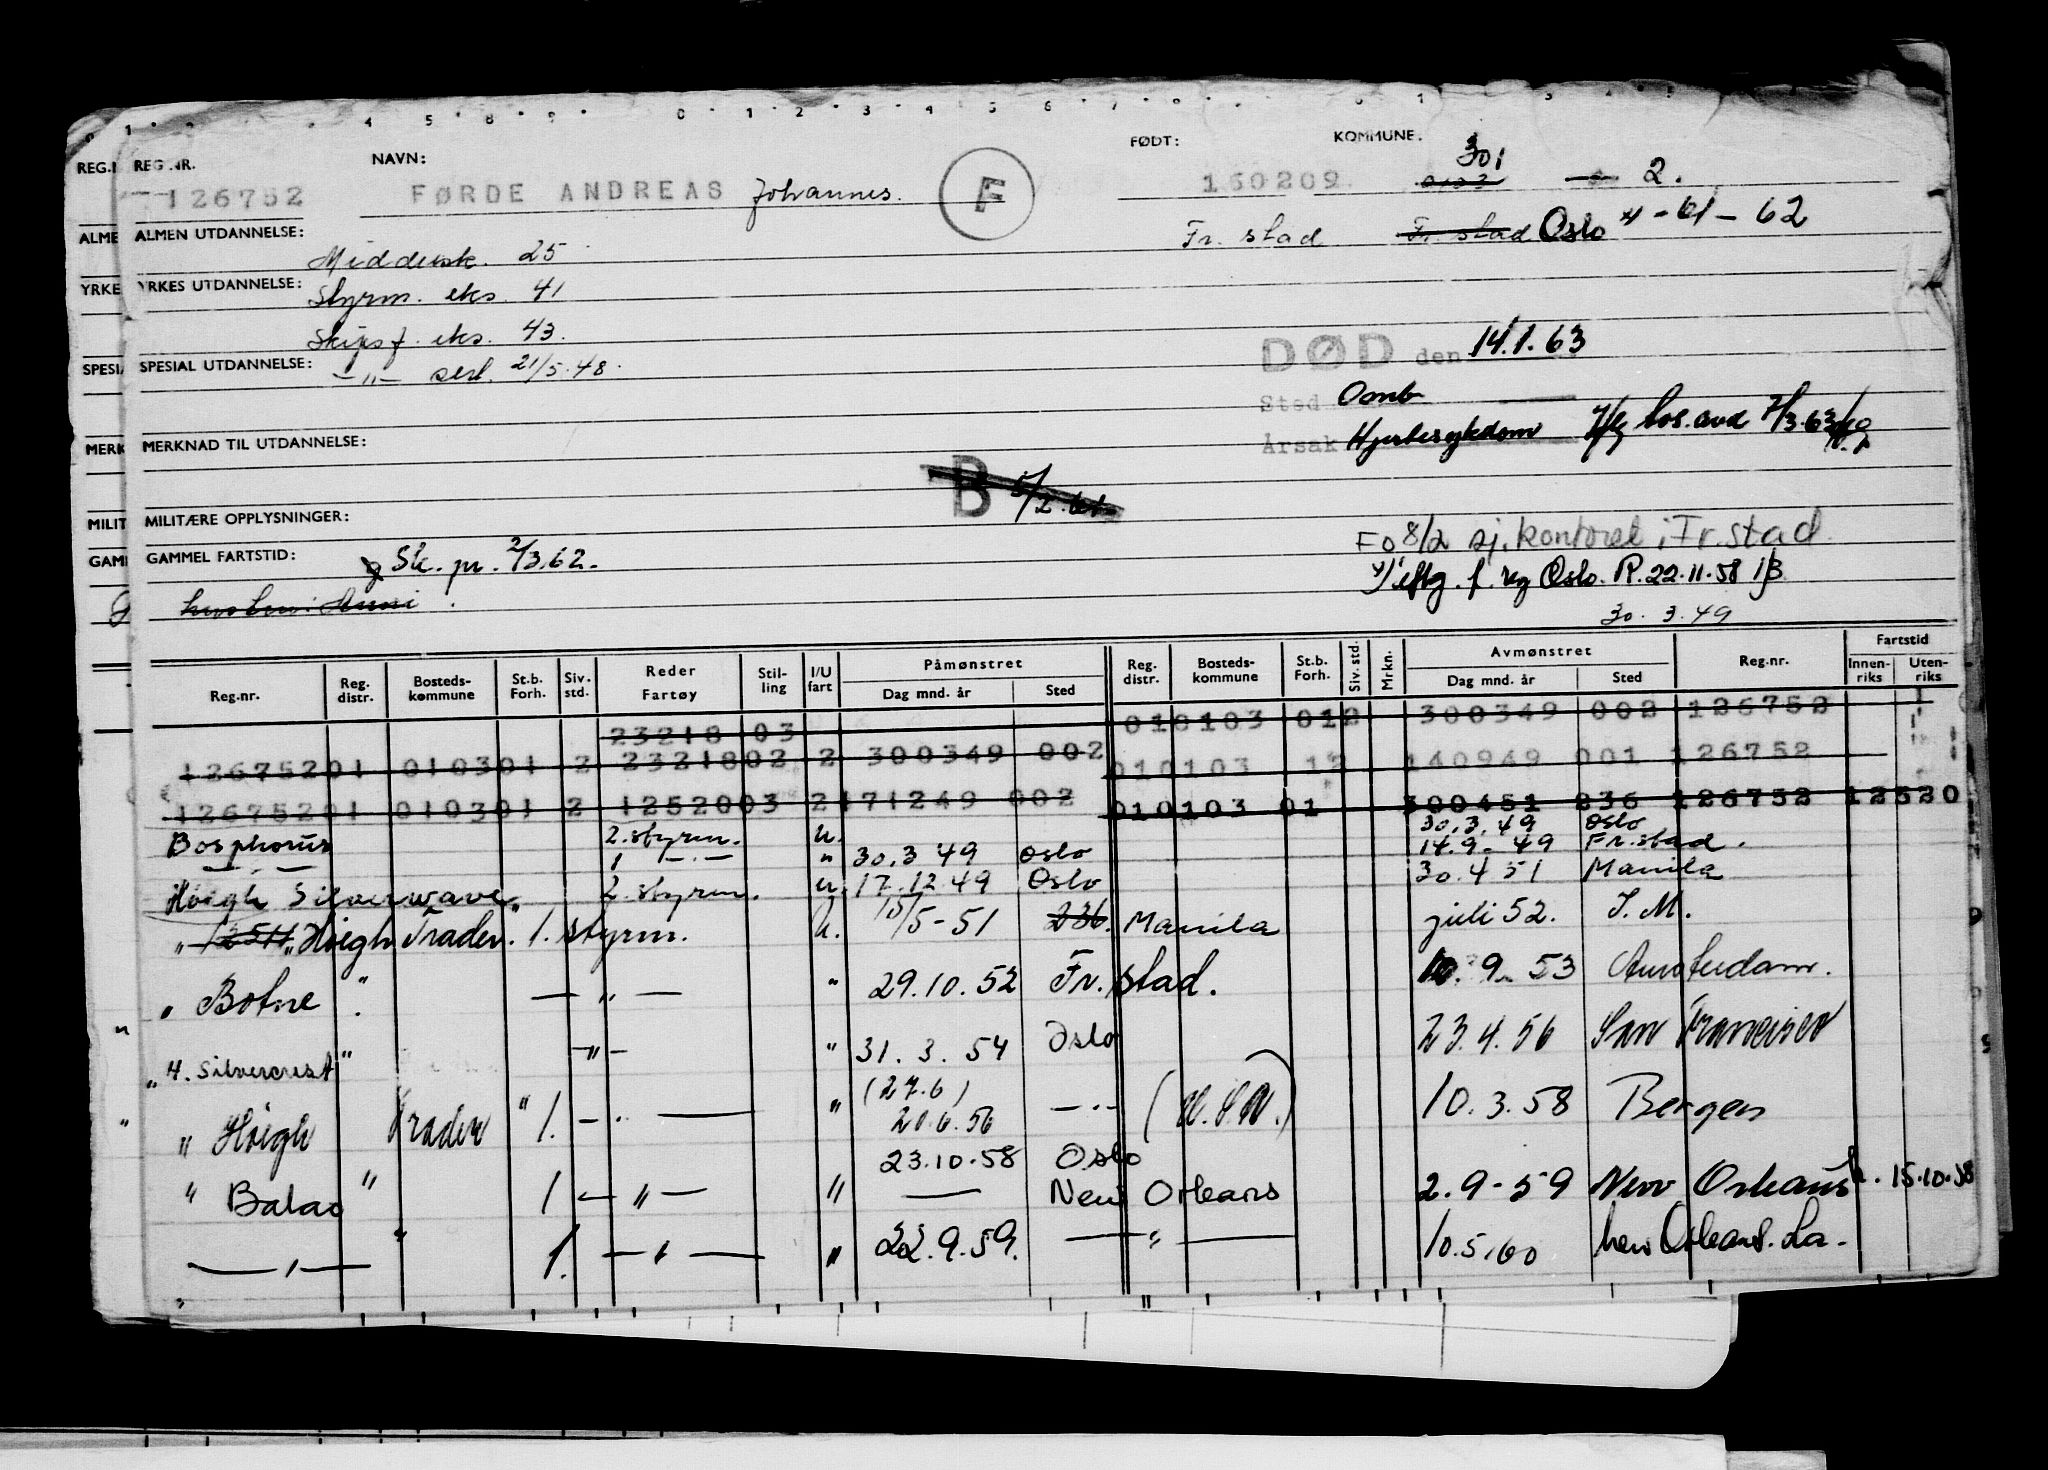 FØDT: KOMMUNE.
REG.NR. NAVN: 301
126752 FØRDE ANDREAS Johannes. F 150209 0103 2.
ALMEN UTDANNELSE: Fr. stad Fr. stad Oslo 62
Middelsk. 25
YRKES UTDANNELSE: Styrm. eks. 41
Skipsf. eks. 43.
DØD den 14.1.63
SPESIAL UTDANNELSE: —„— sert. 21/5.48.
Sted Omb
Årsak Hjertesykdom bos.avd 7/3.63
MERKNAD TIL UTDANNELSE:
B 5/2
MILITÆRE OPPLYSNINGER:
Fo 8/2 sj.kontoret i Fr.stad
GAMMEL FARTSTID: Sk. pr. 2/3.62.
eftg. f. reg Oslo. R. 22.11.58
30.3.49
Påmønstret Avmønstret Fartstid
Reg.nr. Reg. distr. Bosteds- kommune St.b. Forh. Siv. std. Reder Fartøy Stil- ling I/U fart Dag mnd. år Sted Reg. distr. Bosteds- kommune St.b. Forh. Siv. std. Mrkn. Dag mnd. år Sted Reg.nr. Innen- riks Uten- riks
23218 03 010103 012 300349 002 126752
126752 01 0103 01 2 23218 02 2 300349 002 010103 12 140949 001 126752
126752 01 0103 01 2 12520 03 2 171249 002 010103 01 300451 236 126752 12520
Bosphorus 2.styrm. u. 30.3.49 Oslo
—„— 1 —„— „ 30.3 49 Oslo 14.9-49 Fr.stad.
Høigh Silverwave 2.styrm. u. 17.12.49 Oslo 30.4 51 Manila
„ Høigh Trader. 1. styrm. u. 15/5-51 236. Manila juli 52. S.M.
„ Botne „ —„— „ 29.10.52 Fr.stad. 10.9.53 Amsterdam.
„ H. Silvercrest „ —„— „ 31.3.54 Oslo 23.4.56 San Francisco
„ Høigh Trader „ 1. —„— „ (27.6) 20.6.56 —„— 10.3.58 Bergen
23.10.58 Oslo
„ Balao „ 1 —„— „ — New Orleans 2.9-59 New Orleans 15.10.58
—„— „ 1. —„— „ 22.9.59. —„— 10.5.60 New Orleans. La.